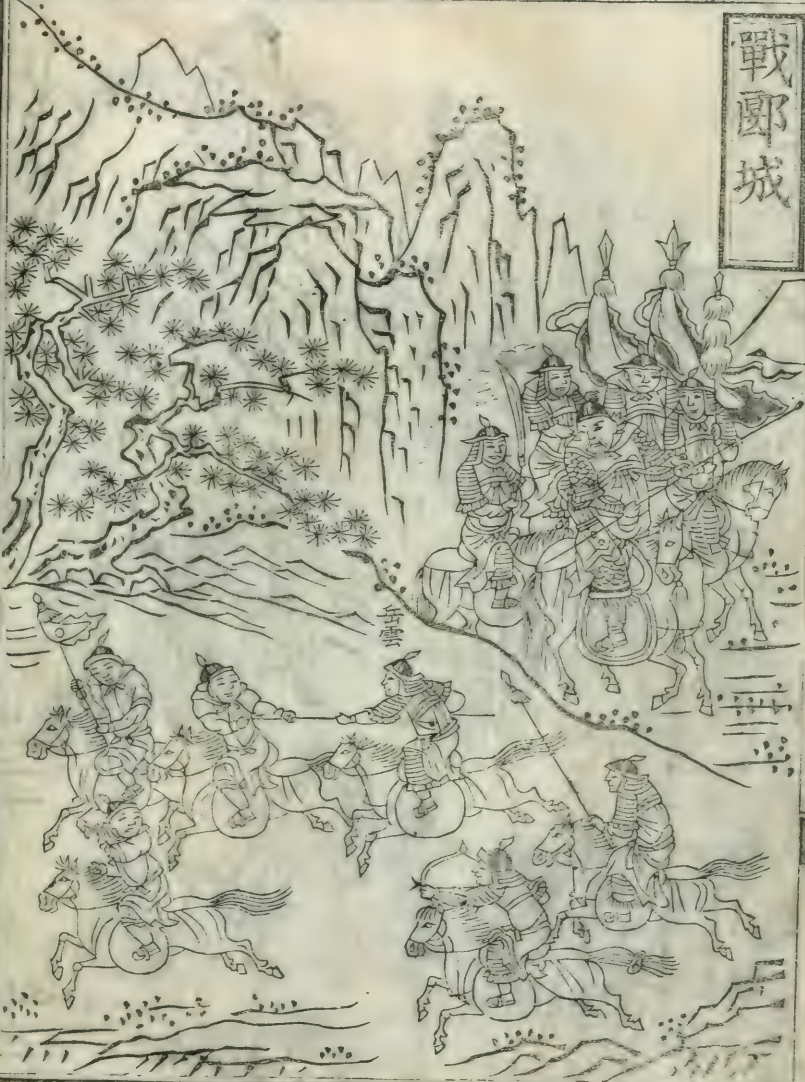 戰郾城
岳雲